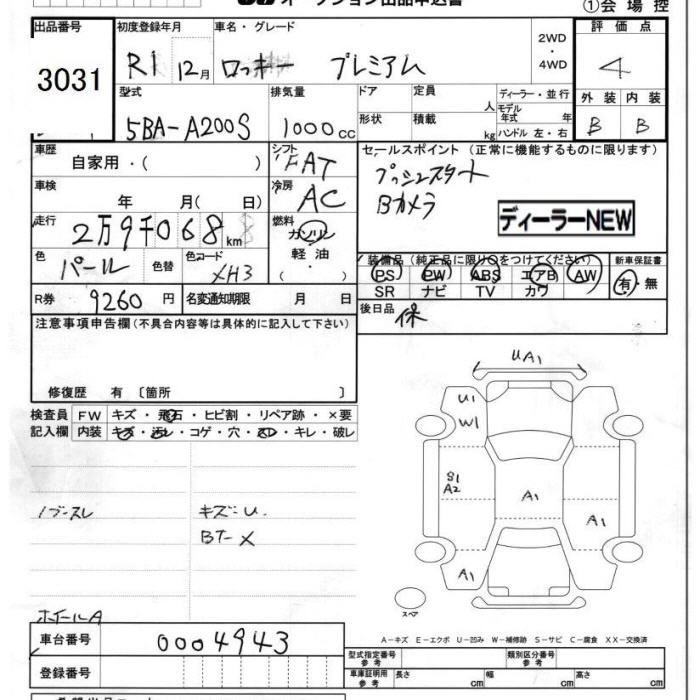 オークション出品申込書
①会場控
出品番号 3031
初度登録年月 R1 12月
車名・グレード ロッキー プレミアム
2WD・4WD
評価点 4
型式 5BA-A200S
排気量 1000cc
ドア 形状
定員 人
積載 kg
ディーラー・並行
モデル年式 年
ハンドル 左・右
外装 B
内装 B
車歴 自家用・( )
シフト FAT
セールスポイント (正常に機能するものに限ります)
プッシュスタート
Bカメラ
ディーラーNEW
車検 年 月( 日)
冷房 AC
走行 2万9千068km
燃料 ガソリン 軽油 ( ・ )
色 パール 色替
色コード XH3
装備品(純正品に限り○をつけてください)
PS PW ABS エアB AW
SR ナビ TV カワ
新車保証書 有・無
R券 9260円
名変通知期限 月 日
後日品 保
注意事項申告欄(不具合内容等は具体的に記入して下さい)
修復歴 有〔箇所 〕
検査員記入欄
FW キズ・飛石・ヒビ割・リペア跡・×要
内装 キズ・汚レ・コゲ・穴・スレ・キレ・破レ
キズ U.
ホイールA
UA1
U1
W1
S1
A2
A1
A1
A1
スペア
A-キズ E-エクボ U-凹み W-補修跡 S-サビ C-腐食 XX-交換済
車台番号 0004943
登録番号
型式指定番号 参考
類別区分番号 参考
車庫証明用 参考 長さ cm 幅 cm 高さ cm